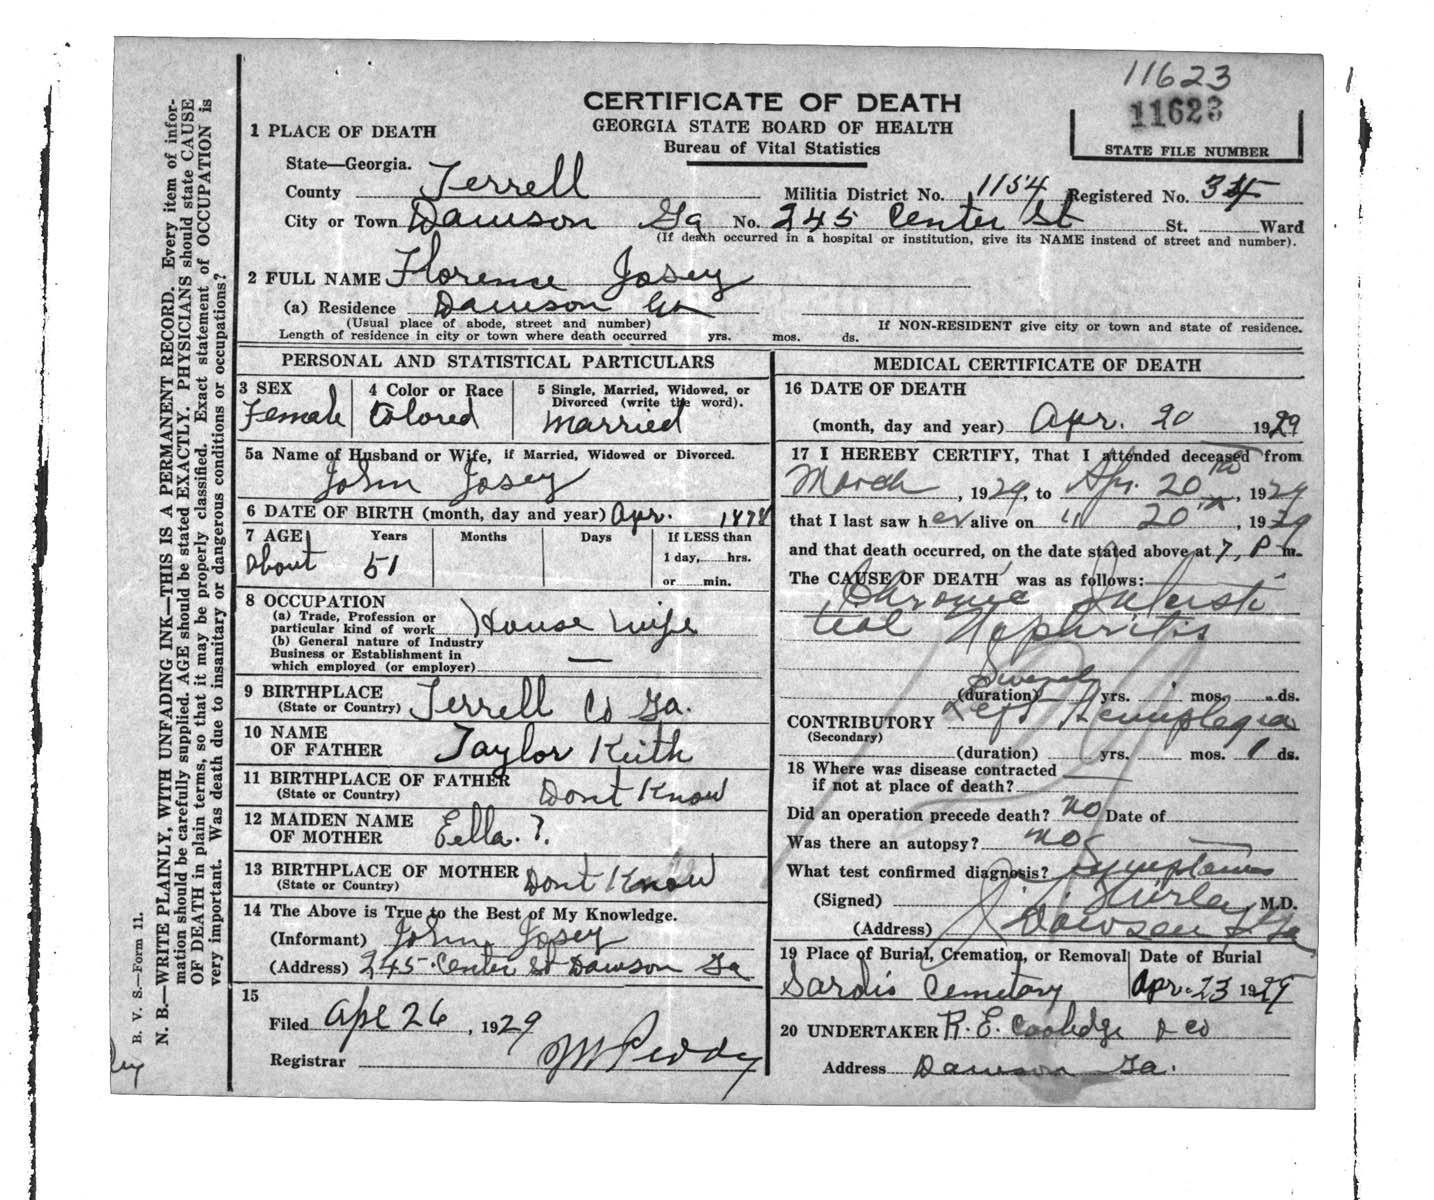 11623
11623
STATE FILE NUMBER
CERTIFICATE OF DEATH
GEORGIA STATE BOARD OF HEALTH
Bureau of Vital Statistics
1 PLACE OF DEATH
State—Georgia.
County Terrell Militia District No. 1154 Registered No. 34
City or Town Dawson Ga No. 245 Center St St. Ward
(If death occurred in a hospital or institution, give its NAME instead of street and number).
2 FULL NAME Florence Josey
(a) Residence Dawson Ga
(Usual place of abode, street and number) If NON-RESIDENT give city or town and state of residence.
Length of residence in city or town where death occurred yrs. mos. ds.
PERSONAL AND STATISTICAL PARTICULARS
3 SEX 4 Color or Race 5 Single, Married, Widowed, or
Divorced (write the word).
Female Colored Married
5a Name of Husband or Wife, if Married, Widowed or Divorced.
John Josey
6 DATE OF BIRTH (month, day and year) Apr. 1878
7 AGE Years Months Days If LESS than
1 day, hrs.
About 51
or min.
8 OCCUPATION
(a) Trade, Profession or
particular kind of work House Wife
(b) General nature of Industry
Business or Establishment in
which employed (or employer) —
9 BIRTHPLACE
(State or Country) Terrell Co Ga.
10 NAME
OF FATHER Taylor Keith
11 BIRTHPLACE OF FATHER
(State or Country) Dont Know
12 MAIDEN NAME
OF MOTHER Eella. ?.
13 BIRTHPLACE OF MOTHER
(State or Country) Dont Know
14 The Above is True to the Best of My Knowledge.
(Informant) John Josey
(Address) 245 Center St Dawson Ga
15
Filed Apl 26, 1929
Registrar JM Peddy
MEDICAL CERTIFICATE OF DEATH
16 DATE OF DEATH
(month, day and year) Apr. 20 1929
17 I HEREBY CERTIFY, That I attended deceased from
March, 1929, to Apr. 20th, 1929
that I last saw her alive on " 20th, 1929
and that death occurred, on the date stated above at 7, P m.
The CAUSE OF DEATH was as follows:
Chronic Intersti
tial Nephritis
Several
(duration) yrs. mos. ds.
CONTRIBUTORY Left Hemiplegia
(Secondary)
(duration) yrs. mos. 1 ds.
18 Where was disease contracted
if not at place of death?
Did an operation precede death? no Date of
Was there an autopsy? no
What test confirmed diagnosis? Symptoms
(Signed) M.D.
(Address) Dawson Ga
19 Place of Burial, Cremation, or Removal Date of Burial
Sardis Cemetary Apr. 23 1929
20 UNDERTAKER R. E. Cooledge & Co
Address Dawson Ga.
B. V. S.—Form 11.
N. B.—WRITE PLAINLY, WITH UNFADING INK—THIS IS A PERMANENT RECORD. Every item of infor-
mation should be carefully supplied. AGE should be stated EXACTLY. PHYSICIANS should state CAUSE
OF DEATH in plain terms, so that it may be properly classified. Exact statement of OCCUPATION is
very important. Was death due to insanitary or dangerous conditions or occupations?